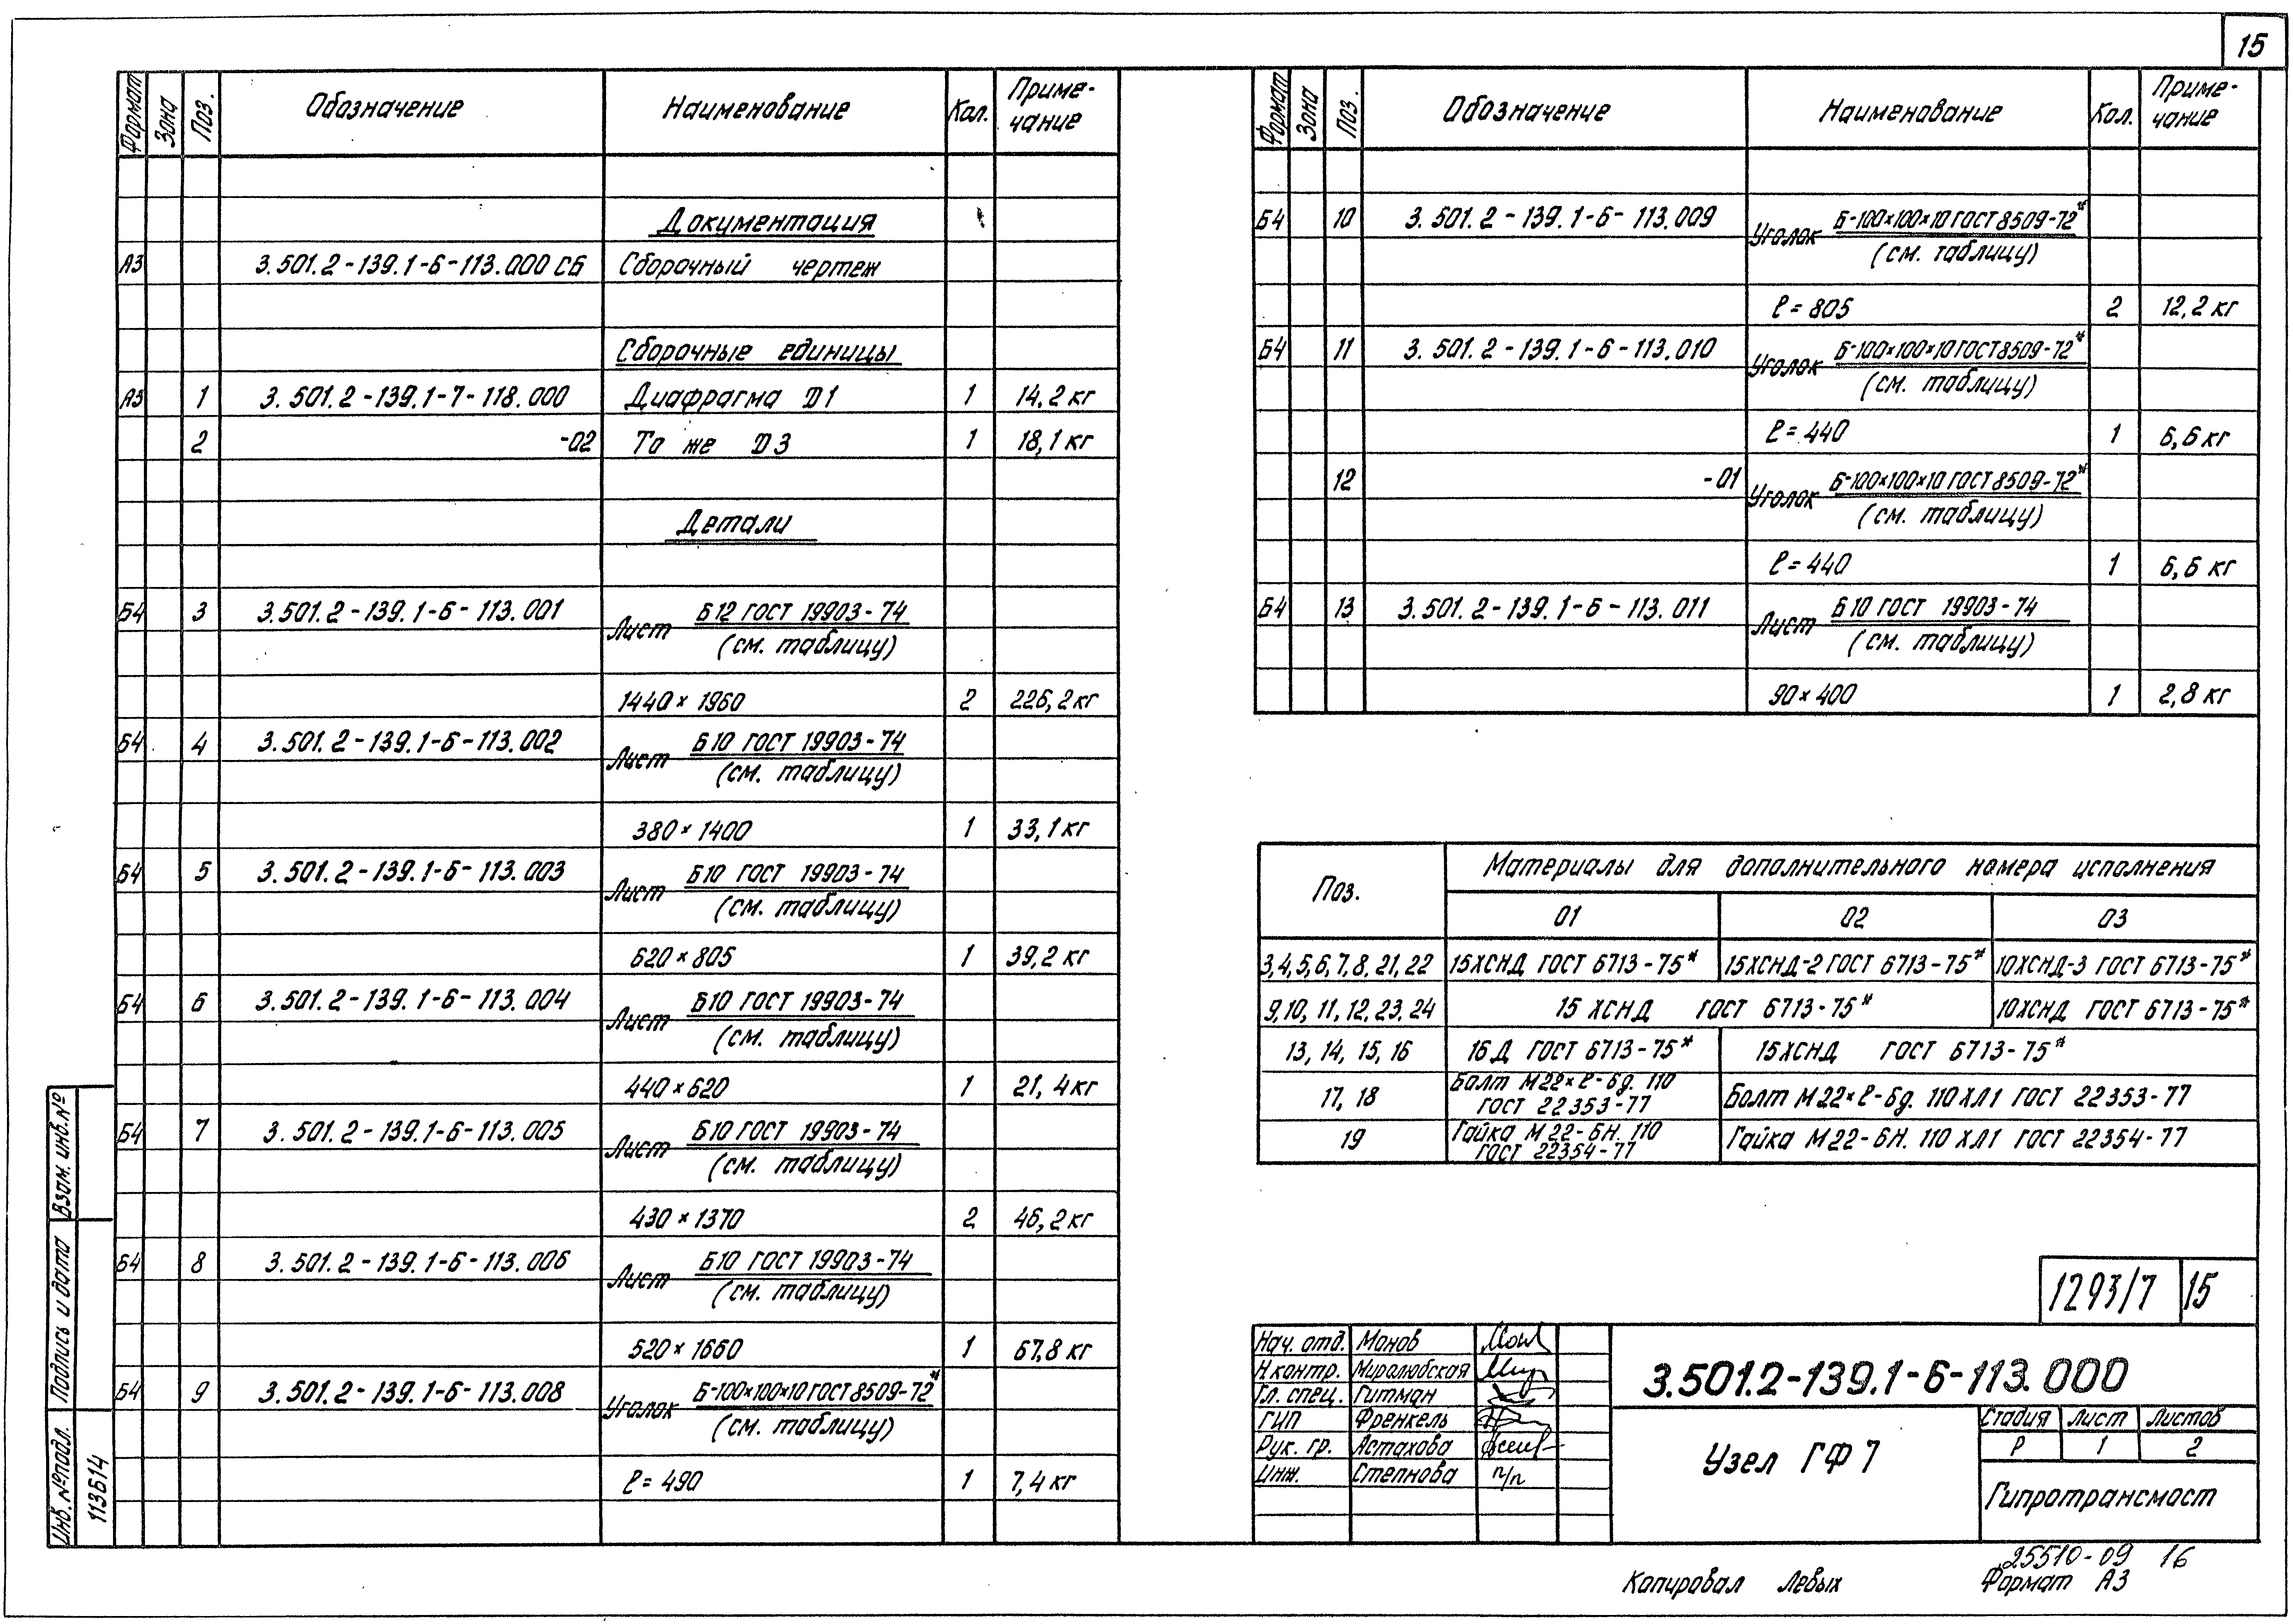 15
Формат Зона Поз. Обозначение Наименование Кол. Приме-
чание
Документация
А3 3.501.2-139.1-6-113.000 СБ Сборочный чертеж
Сборочные единицы
А3 1 3.501.2-139.1-7-118.000 Диафрагма Д1 1 14,2 кг
2 -02 То же Д3 1 18,1 кг
Детали
Б4 3 3.501.2-139.1-6-113.001 Лист Б12 ГОСТ 19903-74
(см. таблицу)
1440×1960 2 226,2 кг
Б4 4 3.501.2-139.1-6-113.002 Лист Б10 ГОСТ 19903-74
(см. таблицу)
380×1400 1 33,1 кг
Б4 5 3.501.2-139.1-6-113.003 Лист Б10 ГОСТ 19903-74
(см. таблицу)
620×805 1 39,2 кг
Б4 6 3.501.2-139.1-6-113.004 Лист Б10 ГОСТ 19903-74
(см. таблицу)
440×620 1 21,4 кг
Б4 7 3.501.2-139.1-6-113.005 Лист Б10 ГОСТ 19903-74
(см. таблицу)
430×1370 2 46,2 кг
Б4 8 3.501.2-139.1-6-113.006 Лист Б10 ГОСТ 19903-74
(см. таблицу)
520×1660 1 67,8 кг
Б4 9 3.501.2-139.1-6-113.008 Уголок Б-100×100×10 ГОСТ 8509-72*
(см. таблицу)
ℓ=490 1 7,4 кг
Взам. инв. №
Подпись и дата
Инв. № подл.
113614
Формат Зона Поз. Обозначение Наименование Кол. Приме-
чание
Б4 10 3.501.2-139.1-6-113.009 Уголок Б-100×100×10 ГОСТ 8509-72*
(см. таблицу)
ℓ=805 2 12,2 кг
Б4 11 3.501.2-139.1-6-113.010 Уголок Б-100×100×10 ГОСТ 8509-72*
(см. таблицу)
ℓ=440 1 6,6 кг
12 -01 Уголок Б-100×100×10 ГОСТ 8509-72*
(см. таблицу)
ℓ=440 1 6,6 кг
Б4 13 3.501.2-139.1-6-113.011 Лист Б10 ГОСТ 19903-74
(см. таблицу)
90×400 1 2,8 кг
Поз. Материалы для дополнительного номера исполнения
01 02 03
3,4,5,6,7,8,21,22 15ХСНД ГОСТ 6713-75* 15ХСНД-2 ГОСТ 6713-75* 10ХСНД-3 ГОСТ 6713-75*
9,10, 11, 12, 23, 24 15 ХСНД ГОСТ 6713-75* 10ХСНД ГОСТ 6713-75*
13, 14, 15, 16 16Д ГОСТ 6713-75* 15ХСНД ГОСТ 6713-75*
17, 18 Болт М22×ℓ-6g. 110
ГОСТ 22353-77 Болт М22×ℓ-6g. 110ХЛ1 ГОСТ 22353-77
19 Гайка М22-6Н. 110
ГОСТ 22354-77 Гайка М22-6Н. 110 ХЛ1 ГОСТ 22354-77
1293/7 15
Нач. отд. Монов
Н.контр. Миролюбская
Гл. спец. Гитман
ГИП Френкель
Рук. гр. Астахова
Инж. Степнова п/п
3.501.2-139.1-6-113.000
Узел ГФ7
Стадия Лист Листов
Р 1 2
Гипротрансмост
25510-09 16
Копировал Левых Формат А3